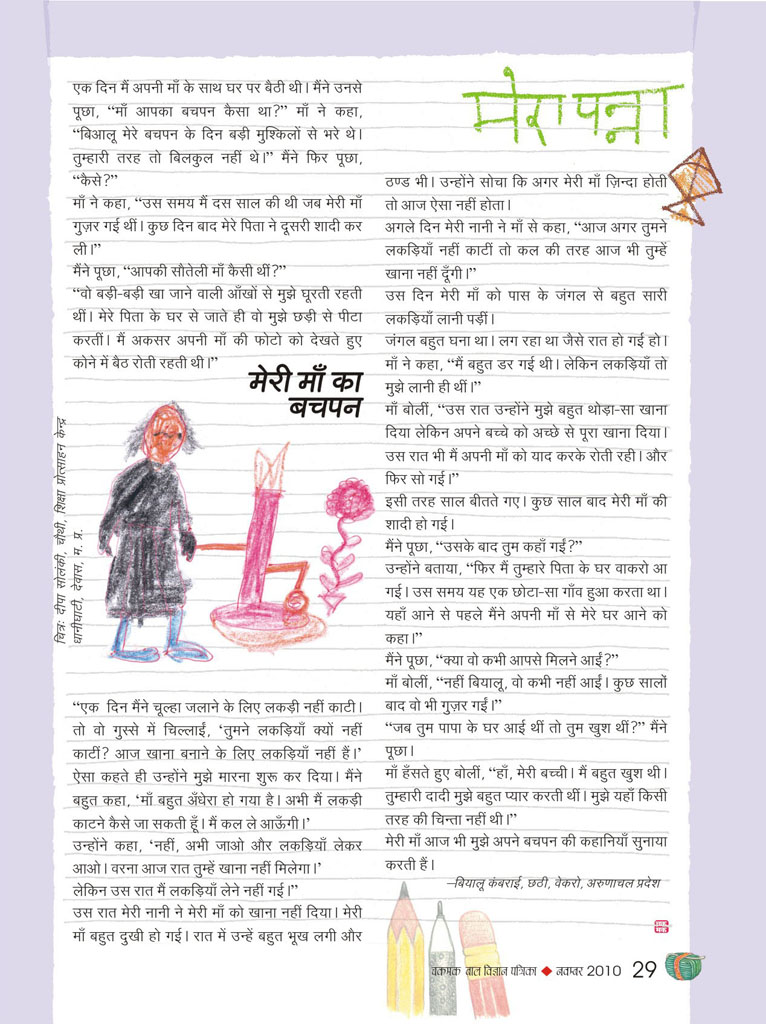 एक दिन मैं अपनी माँ के साथ घर पर बैठी थी। मैंने उनसे
पूछा, “माँ आपका बचपन कैसा था?” माँ ने कहा,
“बिआलू मेरे बचपन के दिन बड़ी मुश्किलों से भरे थे।
तुम्हारी तरह तो बिलकुल नहीं थे।” मैंने फिर पूछा,
“कैसे?”
माँ ने कहा, “उस समय मैं दस साल की थी जब मेरी माँ
गुज़र गई थीं। कुछ दिन बाद मेरे पिता ने दूसरी शादी कर
ली।”
मैंने पूछा, “आपकी सौतेली माँ कैसी थीं?”
“वो बड़ी-बड़ी खा जाने वाली आँखों से मुझे घूरती रहती
थीं। मेरे पिता के घर से जाते ही वो मुझे छड़ी से पीटा
करतीं। मैं अकसर अपनी माँ की फोटो को देखते हुए
कोने में बैठ रोती रहती थी।”
मेरी माँ का
बचपन
चित्र: दीपा सोलंकी, चौथी, शिक्षा प्रोत्साहन केन्द्र
धानीघाटी, देवास, म. प्र.
“एक दिन मैंने चूल्हा जलाने के लिए लकड़ी नहीं काटी।
तो वो गुस्से में चिल्लाईं, ‘तुमने लकड़ियाँ क्यों नहीं
काटीं? आज खाना बनाने के लिए लकड़ियाँ नहीं हैं।’
ऐसा कहते ही उन्होंने मुझे मारना शुरू कर दिया। मैंने
बहुत कहा, ‘माँ बहुत अँधेरा हो गया है। अभी मैं लकड़ी
काटने कैसे जा सकती हूँ। मैं कल ले आऊँगी।’
उन्होंने कहा, ‘नहीं, अभी जाओ और लकड़ियाँ लेकर
आओ। वरना आज रात तुम्हें खाना नहीं मिलेगा।’
लेकिन उस रात मैं लकड़ियाँ लेने नहीं गई।”
उस रात मेरी नानी ने मेरी माँ को खाना नहीं दिया। मेरी
माँ बहुत दुखी हो गई। रात में उन्हें बहुत भूख लगी और
मेरा पन्ना
ठण्ड भी। उन्होंने सोचा कि अगर मेरी माँ ज़िन्दा होती
तो आज ऐसा नहीं होता।
अगले दिन मेरी नानी ने माँ से कहा, “आज अगर तुमने
लकड़ियाँ नहीं काटीं तो कल की तरह आज भी तुम्हें
खाना नहीं दूँगी।”
उस दिन मेरी माँ को पास के जंगल से बहुत सारी
लकड़ियाँ लानी पड़ीं।
जंगल बहुत घना था। लग रहा था जैसे रात हो गई हो।
माँ ने कहा, “मैं बहुत डर गई थी। लेकिन लकड़ियाँ तो
मुझे लानी ही थीं।”
माँ बोलीं, “उस रात उन्होंने मुझे बहुत थोड़ा-सा खाना
दिया लेकिन अपने बच्चे को अच्छे से पूरा खाना दिया।
उस रात भी मैं अपनी माँ को याद करके रोती रही। और
फिर सो गई।”
इसी तरह साल बीतते गए। कुछ साल बाद मेरी माँ की
शादी हो गई।
मैंने पूछा, “उसके बाद तुम कहाँ गईं?”
उन्होंने बताया, “फिर मैं तुम्हारे पिता के घर वाकरो आ
गई। उस समय यह एक छोटा-सा गाँव हुआ करता था।
यहाँ आने से पहले मैंने अपनी माँ से मेरे घर आने को
कहा।”
मैंने पूछा, “क्या वो कभी आपसे मिलने आईं?”
माँ बोलीं, “नहीं बियालू, वो कभी नहीं आईं। कुछ सालों
बाद वो भी गुज़र गईं।”
“जब तुम पापा के घर आई थीं तो तुम खुश थीं?” मैंने
पूछा।
माँ हँसते हुए बोलीं, “हाँ, मेरी बच्ची। मैं बहुत खुश थी।
तुम्हारी दादी मुझे बहुत प्यार करती थीं। मुझे यहाँ किसी
तरह की चिन्ता नहीं थी।”
मेरी माँ आज भी मुझे अपने बचपन की कहानियाँ सुनाया
करती हैं।
–बियालू कंबराई, छठी, वेकरो, अरुणाचल प्रदेश
चक
मक
चकमक बाल विज्ञान पत्रिका ◆ नवम्बर 2010 29